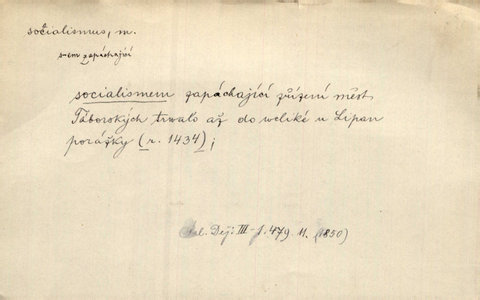 sočialismus, m.
s-em zapáchající
socialismem zapáchající zřízení měst
Táborských trwalo až do weliké u Lipan
porážky (r. 1434);
Pal. Děj. III-1. 479 11. (1850)